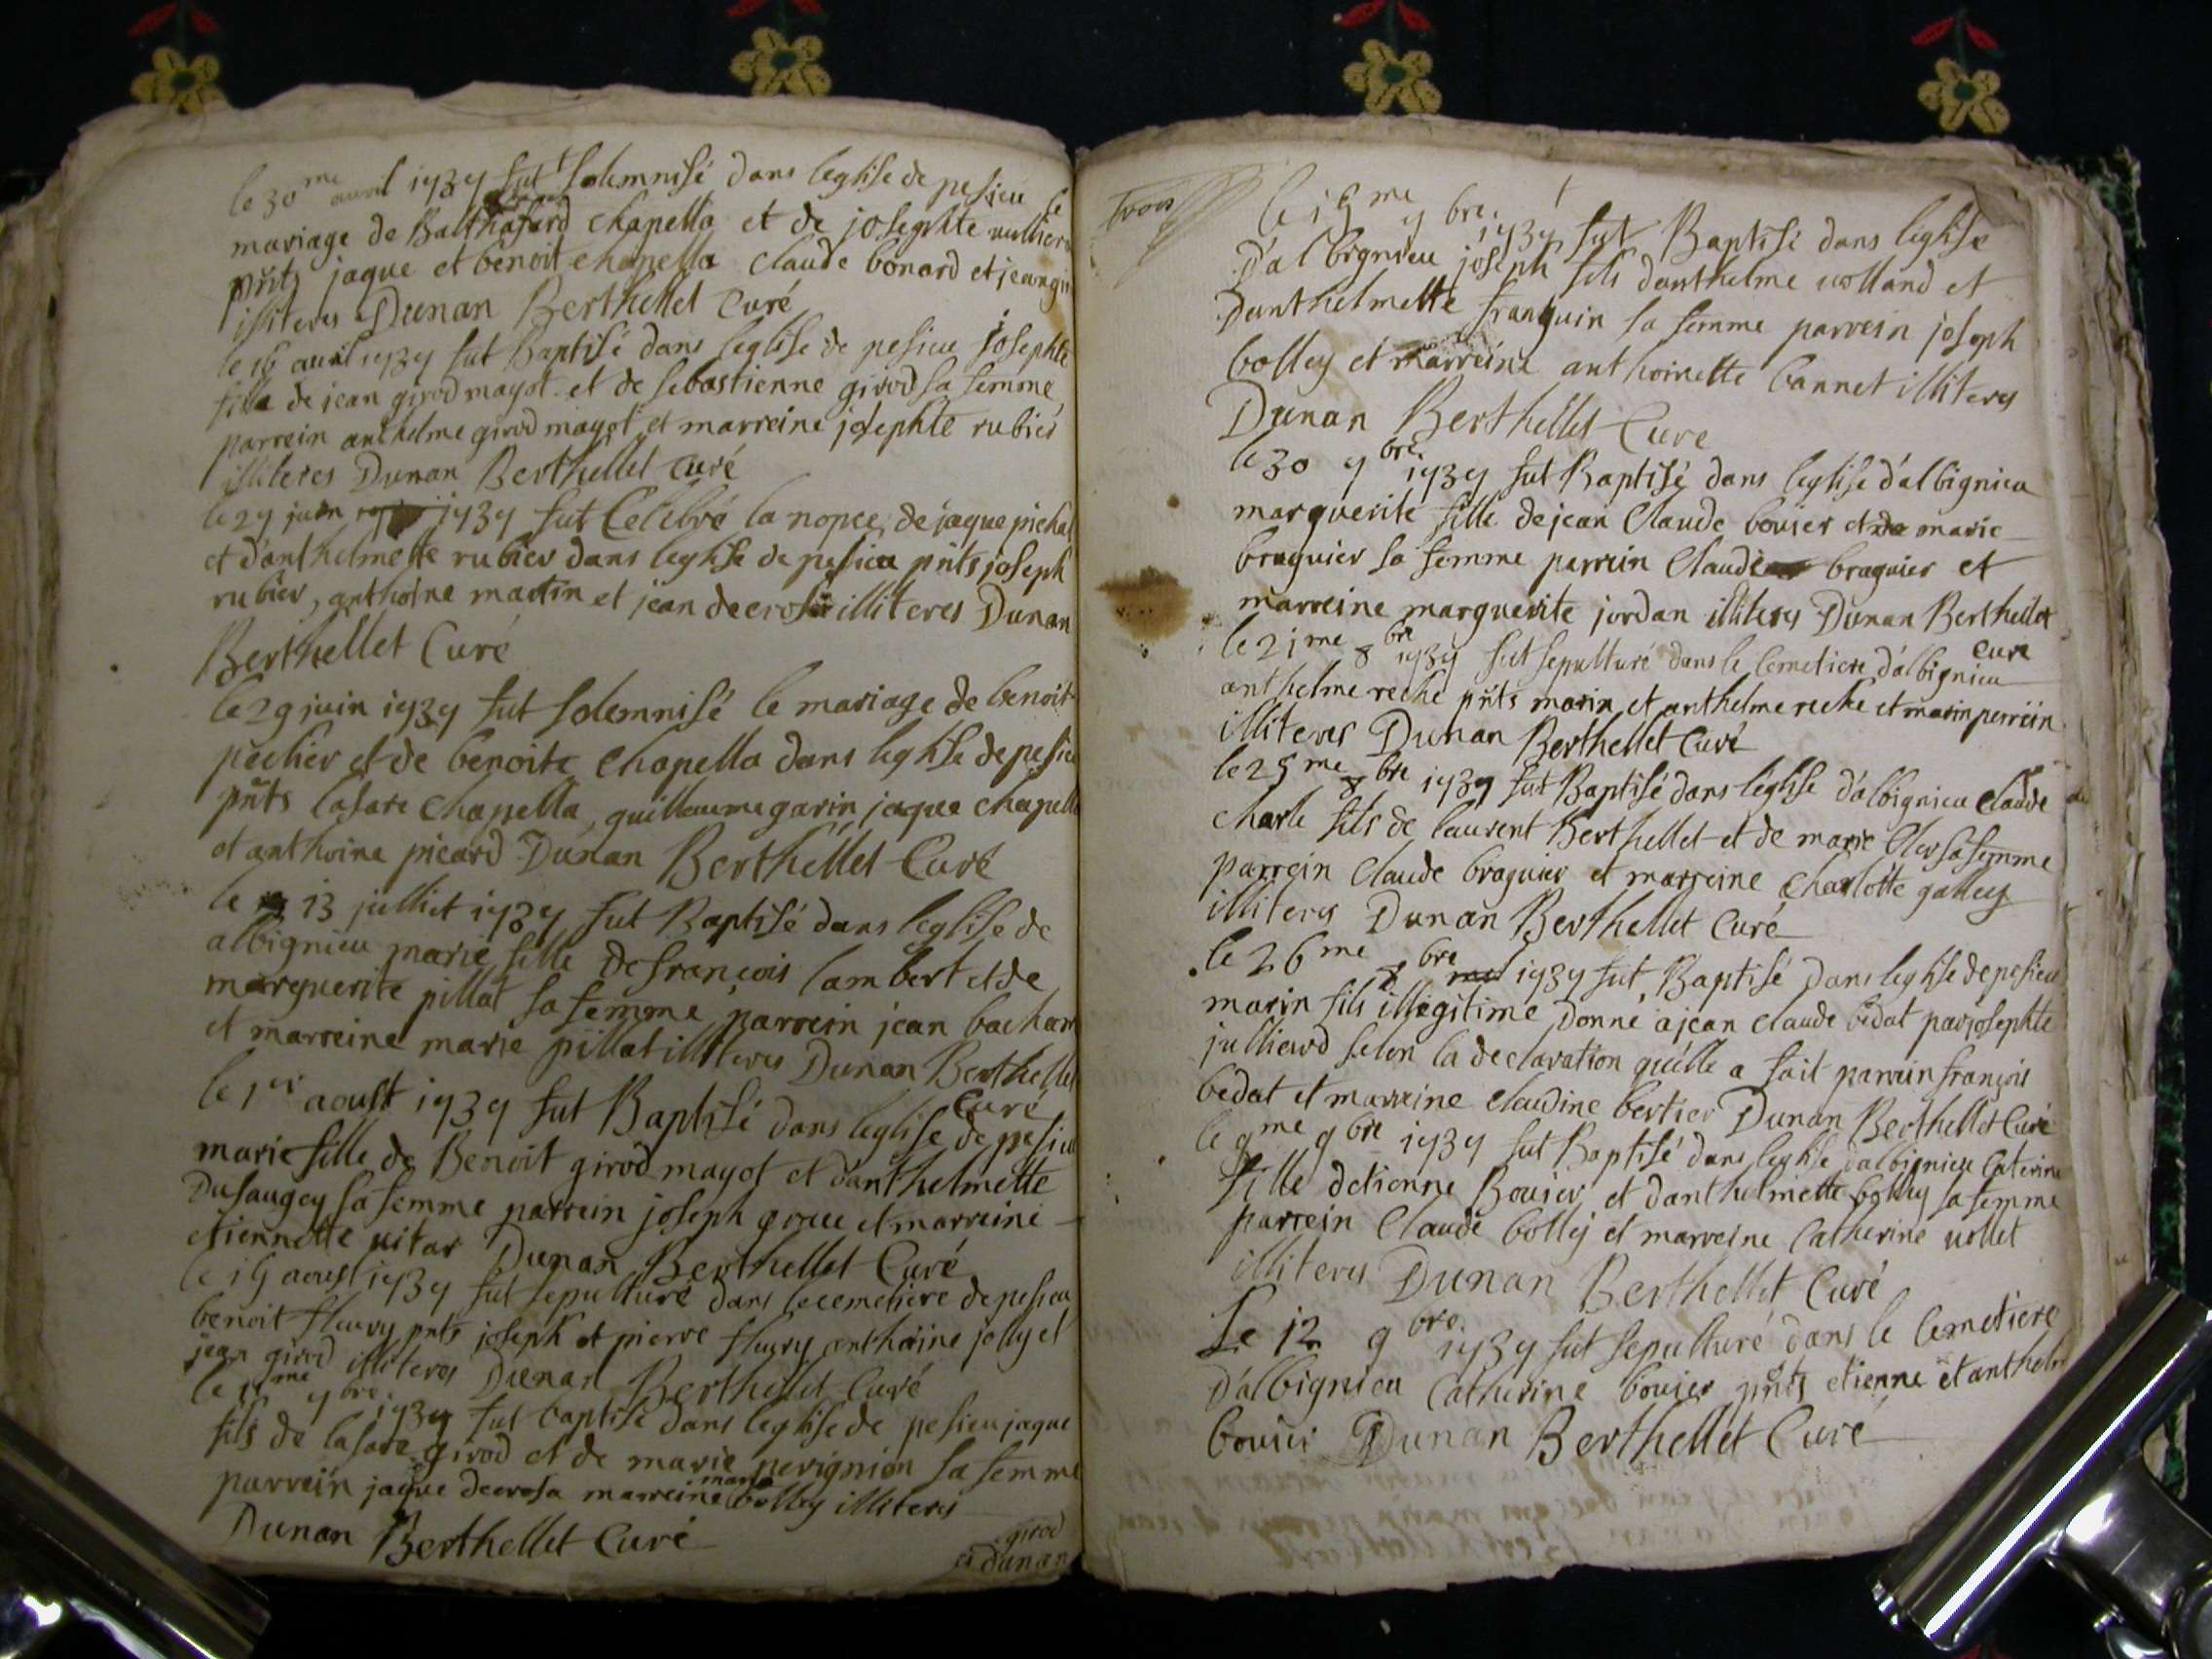 le 30me avril 1737 fut solemnisé dans leglise de pesieu le
mariage de Balthasard chapella et de josephte vullierm
pñts jaque et benoit chapella claude bonard et jean gir
illiteres Dunan Berthellet Curé
le 16 avril 1737 fut Baptisé dans leglise de pesieu josephte
fille de jean girod mayot et de sebastienne girod sa femme
parrein anthelme girod mayot et marreine josephte rubier
illiteres Dunan Berthellet Curé
le 27 juin 1737 fut Celebré la nopce de jaque pichat
et d'anthelmette rubier dans leglise de pesieu pñts joseph
rubier, anthoine martin et jean decrosa illiteres Dunan
Berthellet Curé
le 29 juin 1737 fut solemnisé le mariage de benoit
pechier et de benoite chapella dans leglise de pesieu
pñts lasare chapella, guillaume garin jaque chapella
et anthoine picard Dunan Berthellet Curé
le 13 julliet 1737 fut Baptisé dans leglise de
albignieu marie fille de françois lambert et de
marguerite pillat sa femme parrein jean bachar
et marreine marie pillat illiteres Dunan Berthellet
Curé
le 1er aoust 1737 fut Baptisé dans leglise de pesieu
marie fille de Benoit girod mayot et d'anthelmette
Dusaugey sa femme parrein joseph groue et marreine
etiennette vitar Dunan Berthellet Curé
le 15 aoust 1737 fut sepulturé dans le cemetiere de pesieu
benoit fleury pñts joseph et pierre fleury anthoine jolly et
jean girod illiteres Dunan Berthellet Curé
le 7bre 1737 fut baptisé dans leglise de pesieu jaque
fils de lasare girod et de marie perignion sa femme
parrein jaque decrosa marreine marie bolley illiteres
Dunan Berthellet Curé
girod
dunan
trois
le 15me 7bre. 1737 fut Baptisé dans leglise
D'albignieu joseph fils d'anthelme volland et
D'anthelmette franquin sa femme parrein joseph
bolley et marreine anthoinette bannet illiteres
Dunan Berthellet Cure
le 30 7bre. 1737 fut Baptisé dans leglise d'albignieu
marguerite fille de jean Claude bovier et de marie
braguier sa femme parrein Claude braguier et
marreine marguerite jordan illiteres Dunan Berthellet
cure
le 21me 8bre 1737 fut sepulturé dans le Cemetiere d'albignieu
anthelme reche pñts marin et anthelme reche et marin perrein
illiteres Dunan Berthellet Curé
le 25me 8bre 1737 fut Baptisé dans léglise d'albignieu claude
charle fils de laurent Berthellet et de marie Cler sa femme
parrein Claude braguier et marreine charlotte galley
illiteres Dunan Berthellet Curé
le 26me 8bre 1737 fut Baptisé dans leglise de pesieu
marin fils illegitime Donné a jean claude bedat par josephte
julliard selon la declaration qu'elle a fait parrein françois
bedat et marreine claudine bertier Dunan Berthellet Curé
le 9me 9bre 1737 fut Baptisé dans leglise d'albignieu Caterine
fille detienne Bovier et d'anthelmette bolley sa femme
parrein Claude bolley et marreine Catherine vollet
illiteres Dunan Berthellet Curé
Le 12 9bre. 1737 fut sepulturé dans le Cemetiere
D'albignieu Catherine bovier pñts etienne et anthelm
bovier Dunan Berthellet Curé